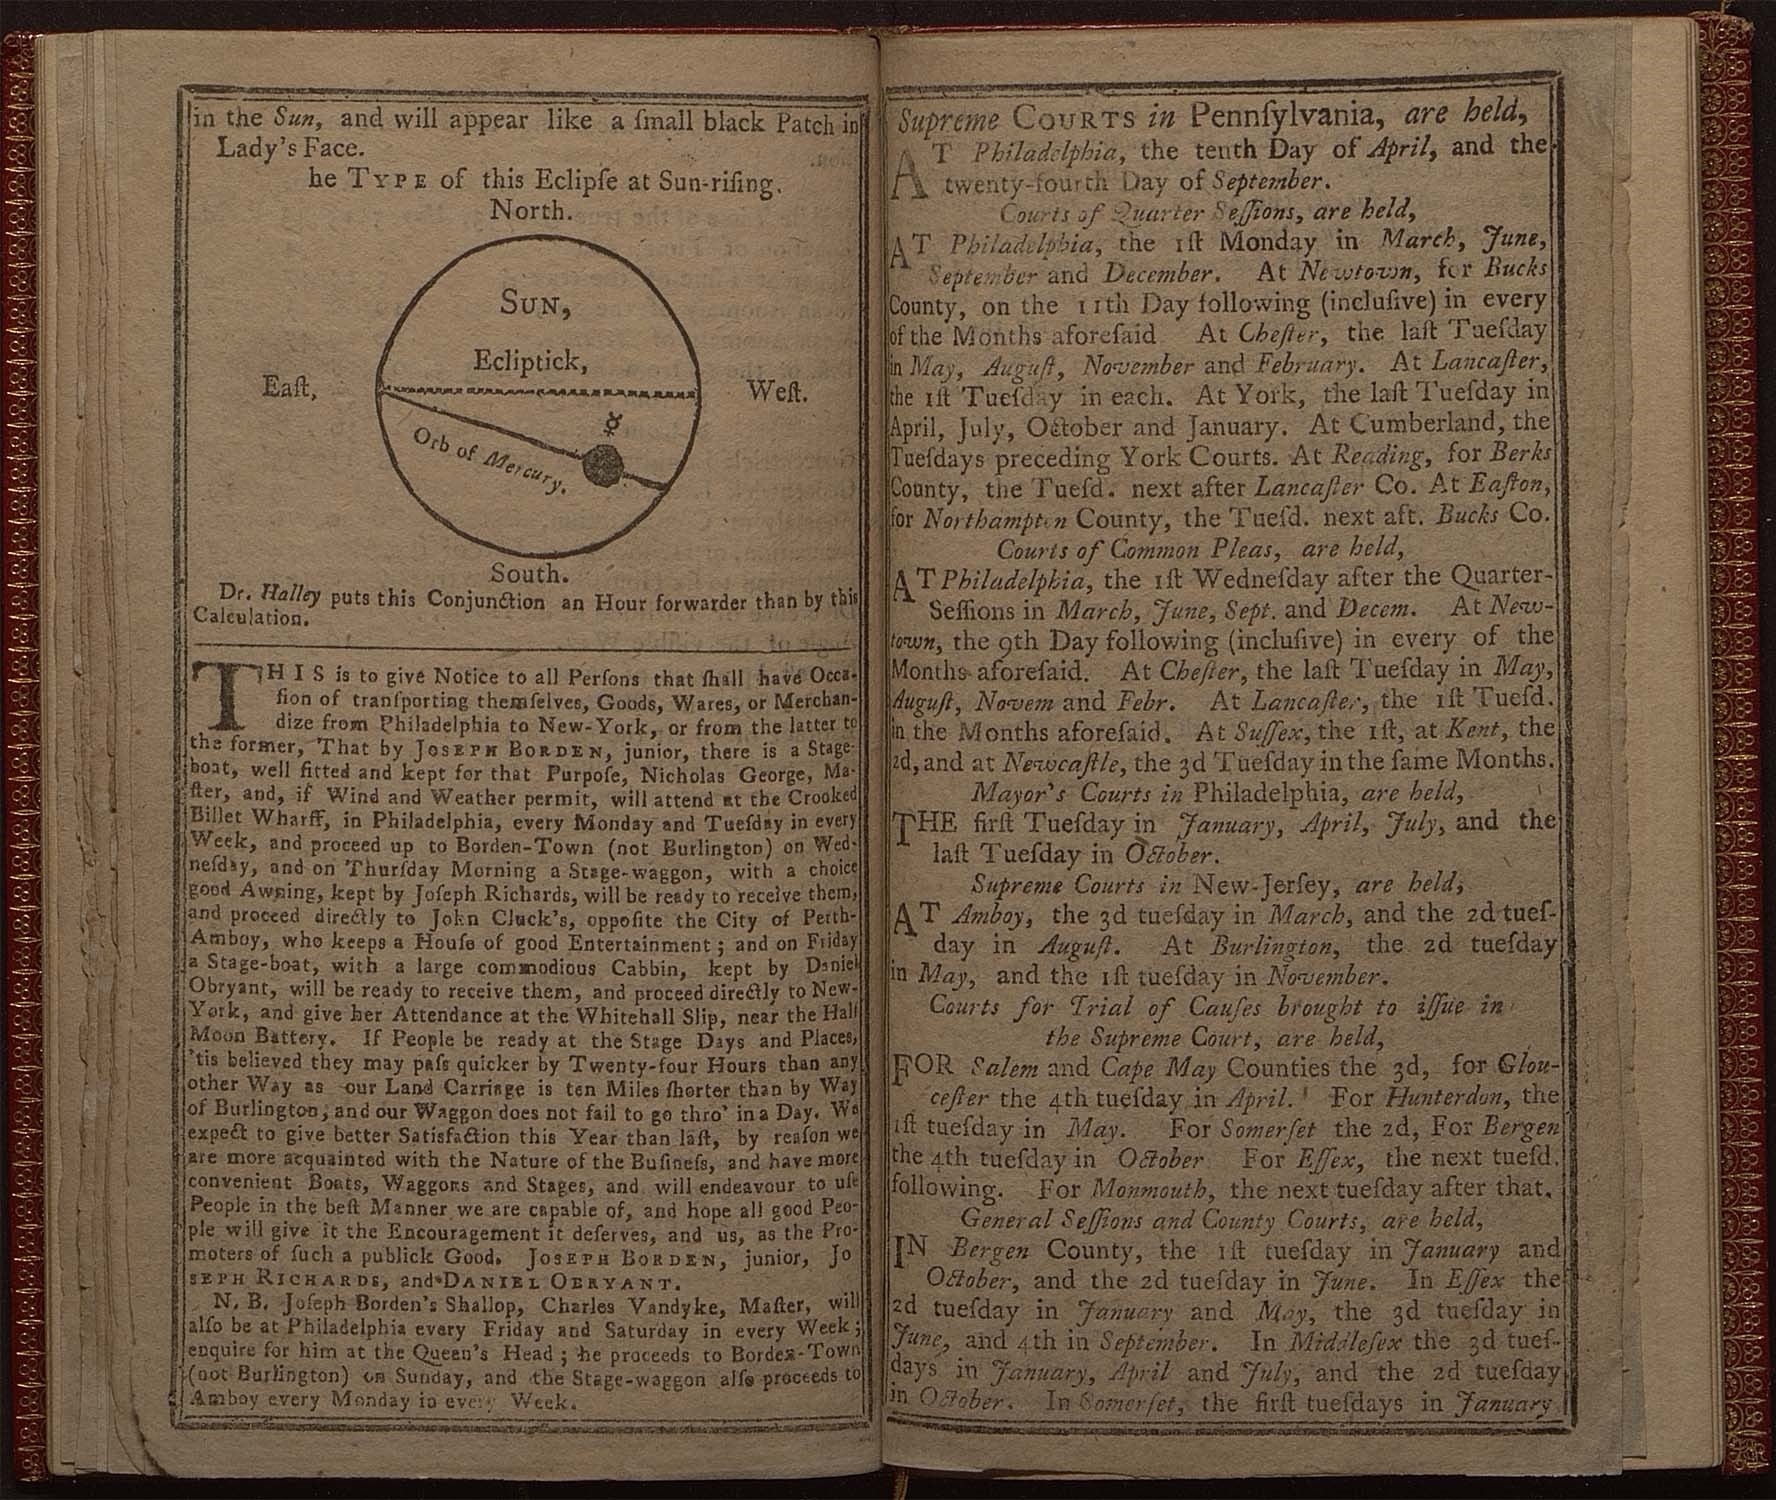 in the Sun, and will appear like a ſmall black Patch in
Lady's Face.
he TYPE of this Eclipſe at Sun-riſing.
North.
SUN,
Ecliptick,
Eaſt,
Weſt.
☿
Orb of Mercury.
South.
Dr. Halley puts this Conjunction an Hour forwarder than by this
Calculation.
THIS is to give Notice to all Perſons that ſhall have Occa-
ſion of tranſporting themſelves, Goods, Wares, or Merchan-
dize from Philadelphia to New-York, or from the latter to
the former, That by JOSEPH BORDEN, junior, there is a Stage-
boat, well fitted and kept for that Purpoſe, Nicholas George, Ma-
ſter, and, if Wind and Weather permit, will attend at the Crooked
Billet Wharff, in Philadelphia, every Monday and Tueſday in every
Week, and proceed up to Borden-Town (not Burlington) on Wed-
neſday, and on Thurſday Morning a Stage-waggon, with a choice
good Awning, kept by Joſeph Richards, will be ready to receive them,
and proceed directly to John Cluck's, oppoſite the City of Perth-
Amboy, who keeps a Houſe of good Entertainment; and on Friday
a Stage-boat, with a large commodious Cabbin, kept by Daniel
Obryant, will be ready to receive them, and proceed directly to New-
York, and give her Attendance at the Whitehall Slip, near the Half
Moon Battery. If People be ready at the Stage Days and Places,
'tis believed they may paſs quicker by Twenty-four Hours than any
other Way as our Land Carriage is ten Miles ſhorter than by Way
of Burlington, and our Waggon does not fail to go thro' in a Day. We
expect to give better Satisfaction this Year than laſt, by reaſon we
are more acquainted with the Nature of the Buſineſs, and have more
convenient Boats, Waggons and Stages, and will endeavour to uſe
People in the beſt Manner we are capable of, and hope all good Peo-
ple will give it the Encouragement it deſerves, and us, as the Pro-
moters of ſuch a publick Good. JOSEPH BORDEN, junior, JO
SEPH RICHARDS, and DANIEL OBRYANT.
N. B. Joſeph Borden's Shallop, Charles Vandyke, Maſter, will
alſo be at Philadelphia every Friday and Saturday in every Week;
enquire for him at the Queen's Head; he proceeds to Borden-Town
(not Burlington) on Sunday, and the Stage-waggon alſo proceeds to
Amboy every Monday in every Week.
Supreme COURTS in Pennſylvania, are held,
AT Philadelphia, the tenth Day of April, and the
twenty-fourth Day of September.
Courts of Quarter Seſſions, are held,
AT Philadelphia, the 1ſt Monday in March, June,
September and December. At Newtown, for Bucks
County, on the 11th Day following (incluſive) in every
of the Months aforeſaid At Cheſter, the laſt Tueſday
in May, Auguſt, November and February. At Lancaſter,
the 1ſt Tueſday in each. At York, the laſt Tueſday in
April, July, October and January. At Cumberland, the
Tueſdays preceding York Courts. At Reading, for Berks
County, the Tueſd. next after Lancaſter Co. At Eaſton,
for Northampton County, the Tueſd. next aft. Bucks Co.
Courts of Common Pleas, are held,
AT Philadelphia, the 1ſt Wedneſday after the Quarter-
Seſſions in March, June, Sept. and Decem. At New-
town, the 9th Day following (incluſive) in every of the
Months aforeſaid. At Cheſter, the laſt Tueſday in May,
Auguſt, Novem and Febr. At Lancaſter, the 1ſt Tueſd.
in the Months aforeſaid. At Suſſex, the 1ſt, at Kent, the
2d, and at Newcaſtle, the 3d Tueſday in the ſame Months.
Mayor's Courts in Philadelphia, are held,
THE firſt Tueſday in January, April, July, and the
laſt Tueſday in October.
Supreme Courts in New-Jerſey, are held,
AT Amboy, the 3d tueſday in March, and the 2d tueſ-
day in Auguſt. At Burlington, the 2d tueſday
in May, and the 1ſt tueſday in November.
Courts for Trial of Cauſes brought to iſſue in
the Supreme Court, are held,
FOR Salem and Cape May Counties the 3d, for Glou-
ceſter the 4th tueſday in April. For Hunterdon, the
1ſt tueſday in May. For Somerſet the 2d, For Bergen
the 4th tueſday in October For Eſſex, the next tueſd.
following. For Monmouth, the next tueſday after that.
General Seſſions and County Courts, are held,
IN Bergen County, the 1ſt tueſday in January and
October, and the 2d tueſday in June. In Eſſex the
2d tueſday in January and May, the 3d tueſday in
June, and 4th in September. In Middleſex the 3d tueſ-
days in January, April and July, and the 2d tueſday
in October. In Somerſet, the firſt tueſdays in January